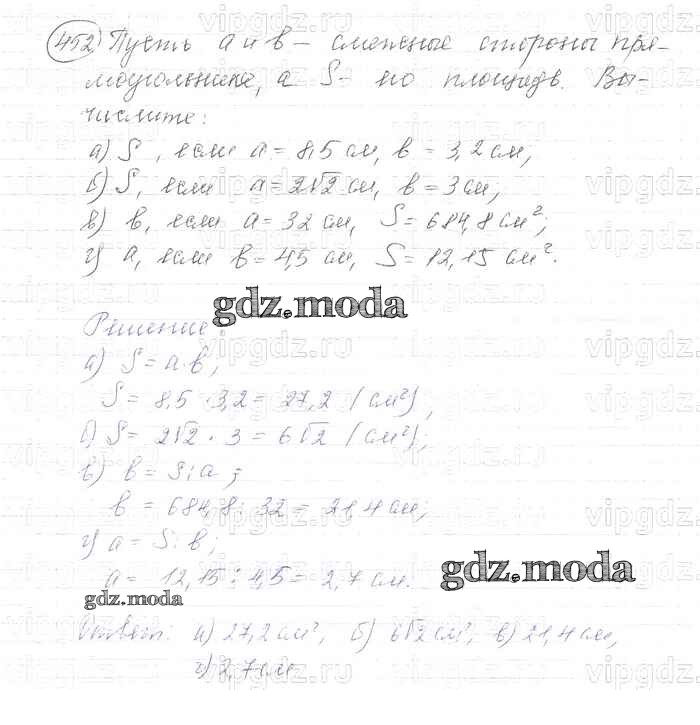 452) Пусть a и b – смежные стороны пря-
моугольника, а S – его площадь. Вы-
числите:
а) S, если a = 8,5 см, b = 3,2 см,
б) S, если a = 2√2 см, b = 3 см,
в) b, если a = 32 см, S = 684,8 см²;
г) a, если b = 4,5 см, S = 12,15 см².
gdz.moda
Решение:
а) S = a·b;
S = 8,5 · 3,2 = 27,2 (см²),
б) S = 2√2 · 3 = 6√2 (см²);
в) b = S : a;
b = 684,8 : 32 = 21,4 см;
г) a = S : b;
a = 12,15 : 4,5 = 2,7 см.
gdz.moda
gdz.moda
Ответ: а) 27,2 см², б) 6√2 см², в) 21,4 см,
г) 2,7 см
vipgdz.ru